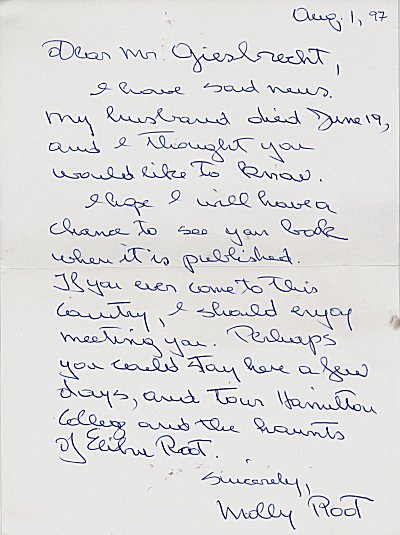 Aug. 1, 97
Dear Mr. Giesbrecht,
I have sad news.
My husband died June 19,
and I thought you
would like to know.
I hope I will have a
chance to see your book
when it is published.
If you ever come to this
country, I should enjoy
meeting you. Perhaps
you could stay here a few
days, and tour Hamilton
College and the haunts
of Elihu Root.
Sincerely,
Molly Root